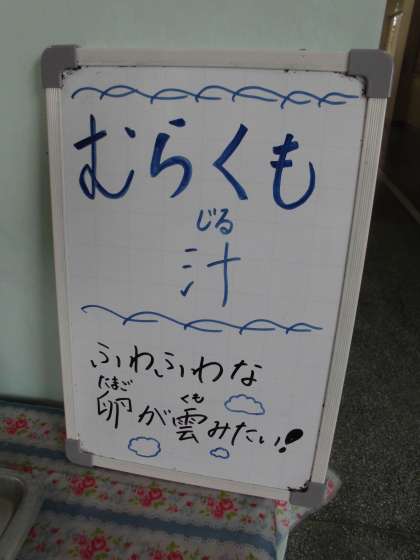 むらくも
じる
汁
ふわふわな
たまご くも
卵が雲みたい!